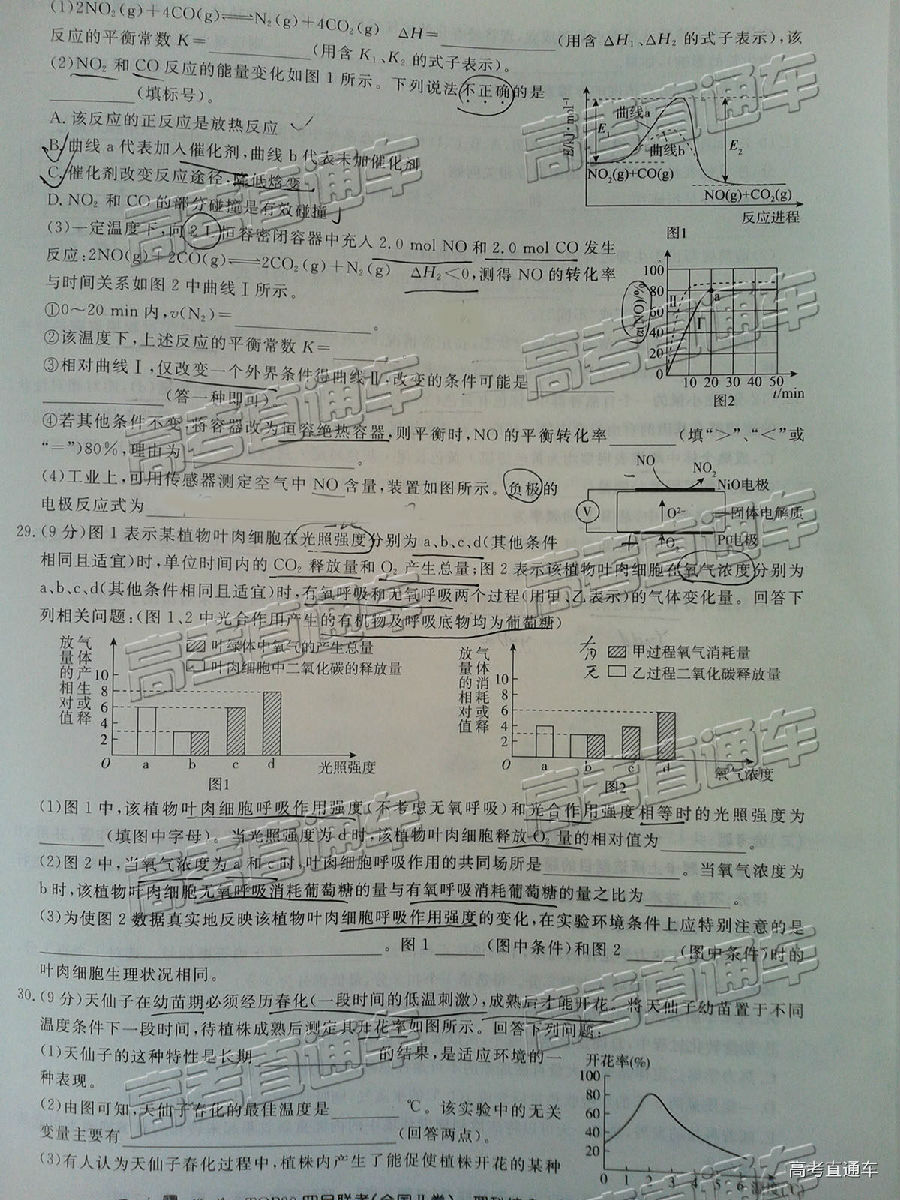 (1)2NO₂(g)+4CO(g)⇌N₂(g)+4CO₂(g) ΔH=________(用含 ΔH₁、ΔH₂ 的式子表示),该
反应的平衡常数 K=________(用含 K₁、K₂ 的式子表示)。
(2)NO₂ 和 CO 反应的能量变化如图 1 所示。下列说法不正确的是
________(填标号)。
A.该反应的正反应是放热反应
B.曲线 a 代表加入催化剂,曲线 b 代表未加催化剂
C.催化剂改变反应途径,降低焓变
D.NO₂ 和 CO 的部分碰撞是有效碰撞
曲线a
曲线b
E₁
E₂
NO₂(g)+CO(g)
NO(g)+CO₂(g)
反应进程
图1
(3)一定温度下,向 2 L 恒容密闭容器中充入 2.0 mol NO 和 2.0 mol CO 发生
反应:2NO(g)+2CO(g)⇌2CO₂(g)+N₂(g) ΔH₂<0,测得 NO 的转化率
与时间关系如图 2 中曲线Ⅰ所示。
①0~20 min 内,v(N₂)=________。
②该温度下,上述反应的平衡常数 K=________
③相对曲线Ⅰ,仅改变一个外界条件得曲线Ⅱ,改变的条件可能是
________(答一种即可)
α(NO)/%
100
80
60
40
20
0
Ⅱ
Ⅰ
a
10 20 30 40 50
t/min
图2
④若其他条件不变,将容器改为恒容绝热容器,则平衡时,NO 的平衡转化率________(填“>”、“<”或
“=”)80%,理由为________。
(4)工业上,可用传感器测定空气中 NO 含量,装置如图所示。负极的
电极反应式为________
NO
NO₂
NiO电极
V
O²⁻
固体电解质
O₂
Pt电极
29.(9 分)图 1 表示某植物叶肉细胞在光照强度分别为 a、b、c、d(其他条件
相同且适宜)时,单位时间内的 CO₂ 释放量和 O₂ 产生总量;图 2 表示该植物叶肉细胞在氧气浓度分别为
a、b、c、d(其他条件相同且适宜)时,有氧呼吸和无氧呼吸两个过程(用甲、乙表示)的气体变化量。回答下
列相关问题:(图 1、2 中光合作用产生的有机物及呼吸底物均为葡萄糖)
气体的产生或释放量相对值
叶绿体中氧气的产生总量
叶肉细胞中二氧化碳的释放量
10
8
6
4
2
O
a b c d
光照强度
图1
气体的消耗或释放量相对值
有 甲过程氧气消耗量
无 乙过程二氧化碳释放量
10
8
6
4
2
O
a b c d
氧气浓度
图2
(1)图 1 中,该植物叶肉细胞呼吸作用强度(不考虑无氧呼吸)和光合作用强度相等时的光照强度为
________(填图中字母)。当光照强度为 d 时,该植物叶肉细胞释放 O₂ 量的相对值为________。
(2)图 2 中,当氧气浓度为 a 和 c 时,叶肉细胞呼吸作用的共同场所是________。当氧气浓度为
b 时,该植物叶肉细胞无氧呼吸消耗葡萄糖的量与有氧呼吸消耗葡萄糖的量之比为________。
(3)为使图 2 数据真实地反映该植物叶肉细胞呼吸作用强度的变化,在实验环境条件上应特别注意的是
________。图 1 ____(图中条件)和图 2 ____(图中条件)时的
叶肉细胞生理状况相同。
30.(9 分)天仙子在幼苗期必须经历春化(一段时间的低温刺激),成熟后才能开花。将天仙子幼苗置于不同
温度条件下一段时间,待植株成熟后测定其开花率如图所示。回答下列问题:
(1)天仙子的这种特性是长期________的结果,是适应环境的一
种表现。
(2)由图可知,天仙子春化的最佳温度是________℃。该实验中的无关
变量主要有________(回答两点)。
(3)有人认为天仙子春化过程中,植株内产生了能促使植株开花的某种
开花率(%)
100
80
60
40
20
0 1 2 3 4 5 6
高考直通车
高考直通车
高考直通车
高考直通车
高考直通车
高考直通车
高考直通车
高考直通车
高考直通车
高考直通车
高考直通车
高考直通车
高考直通车